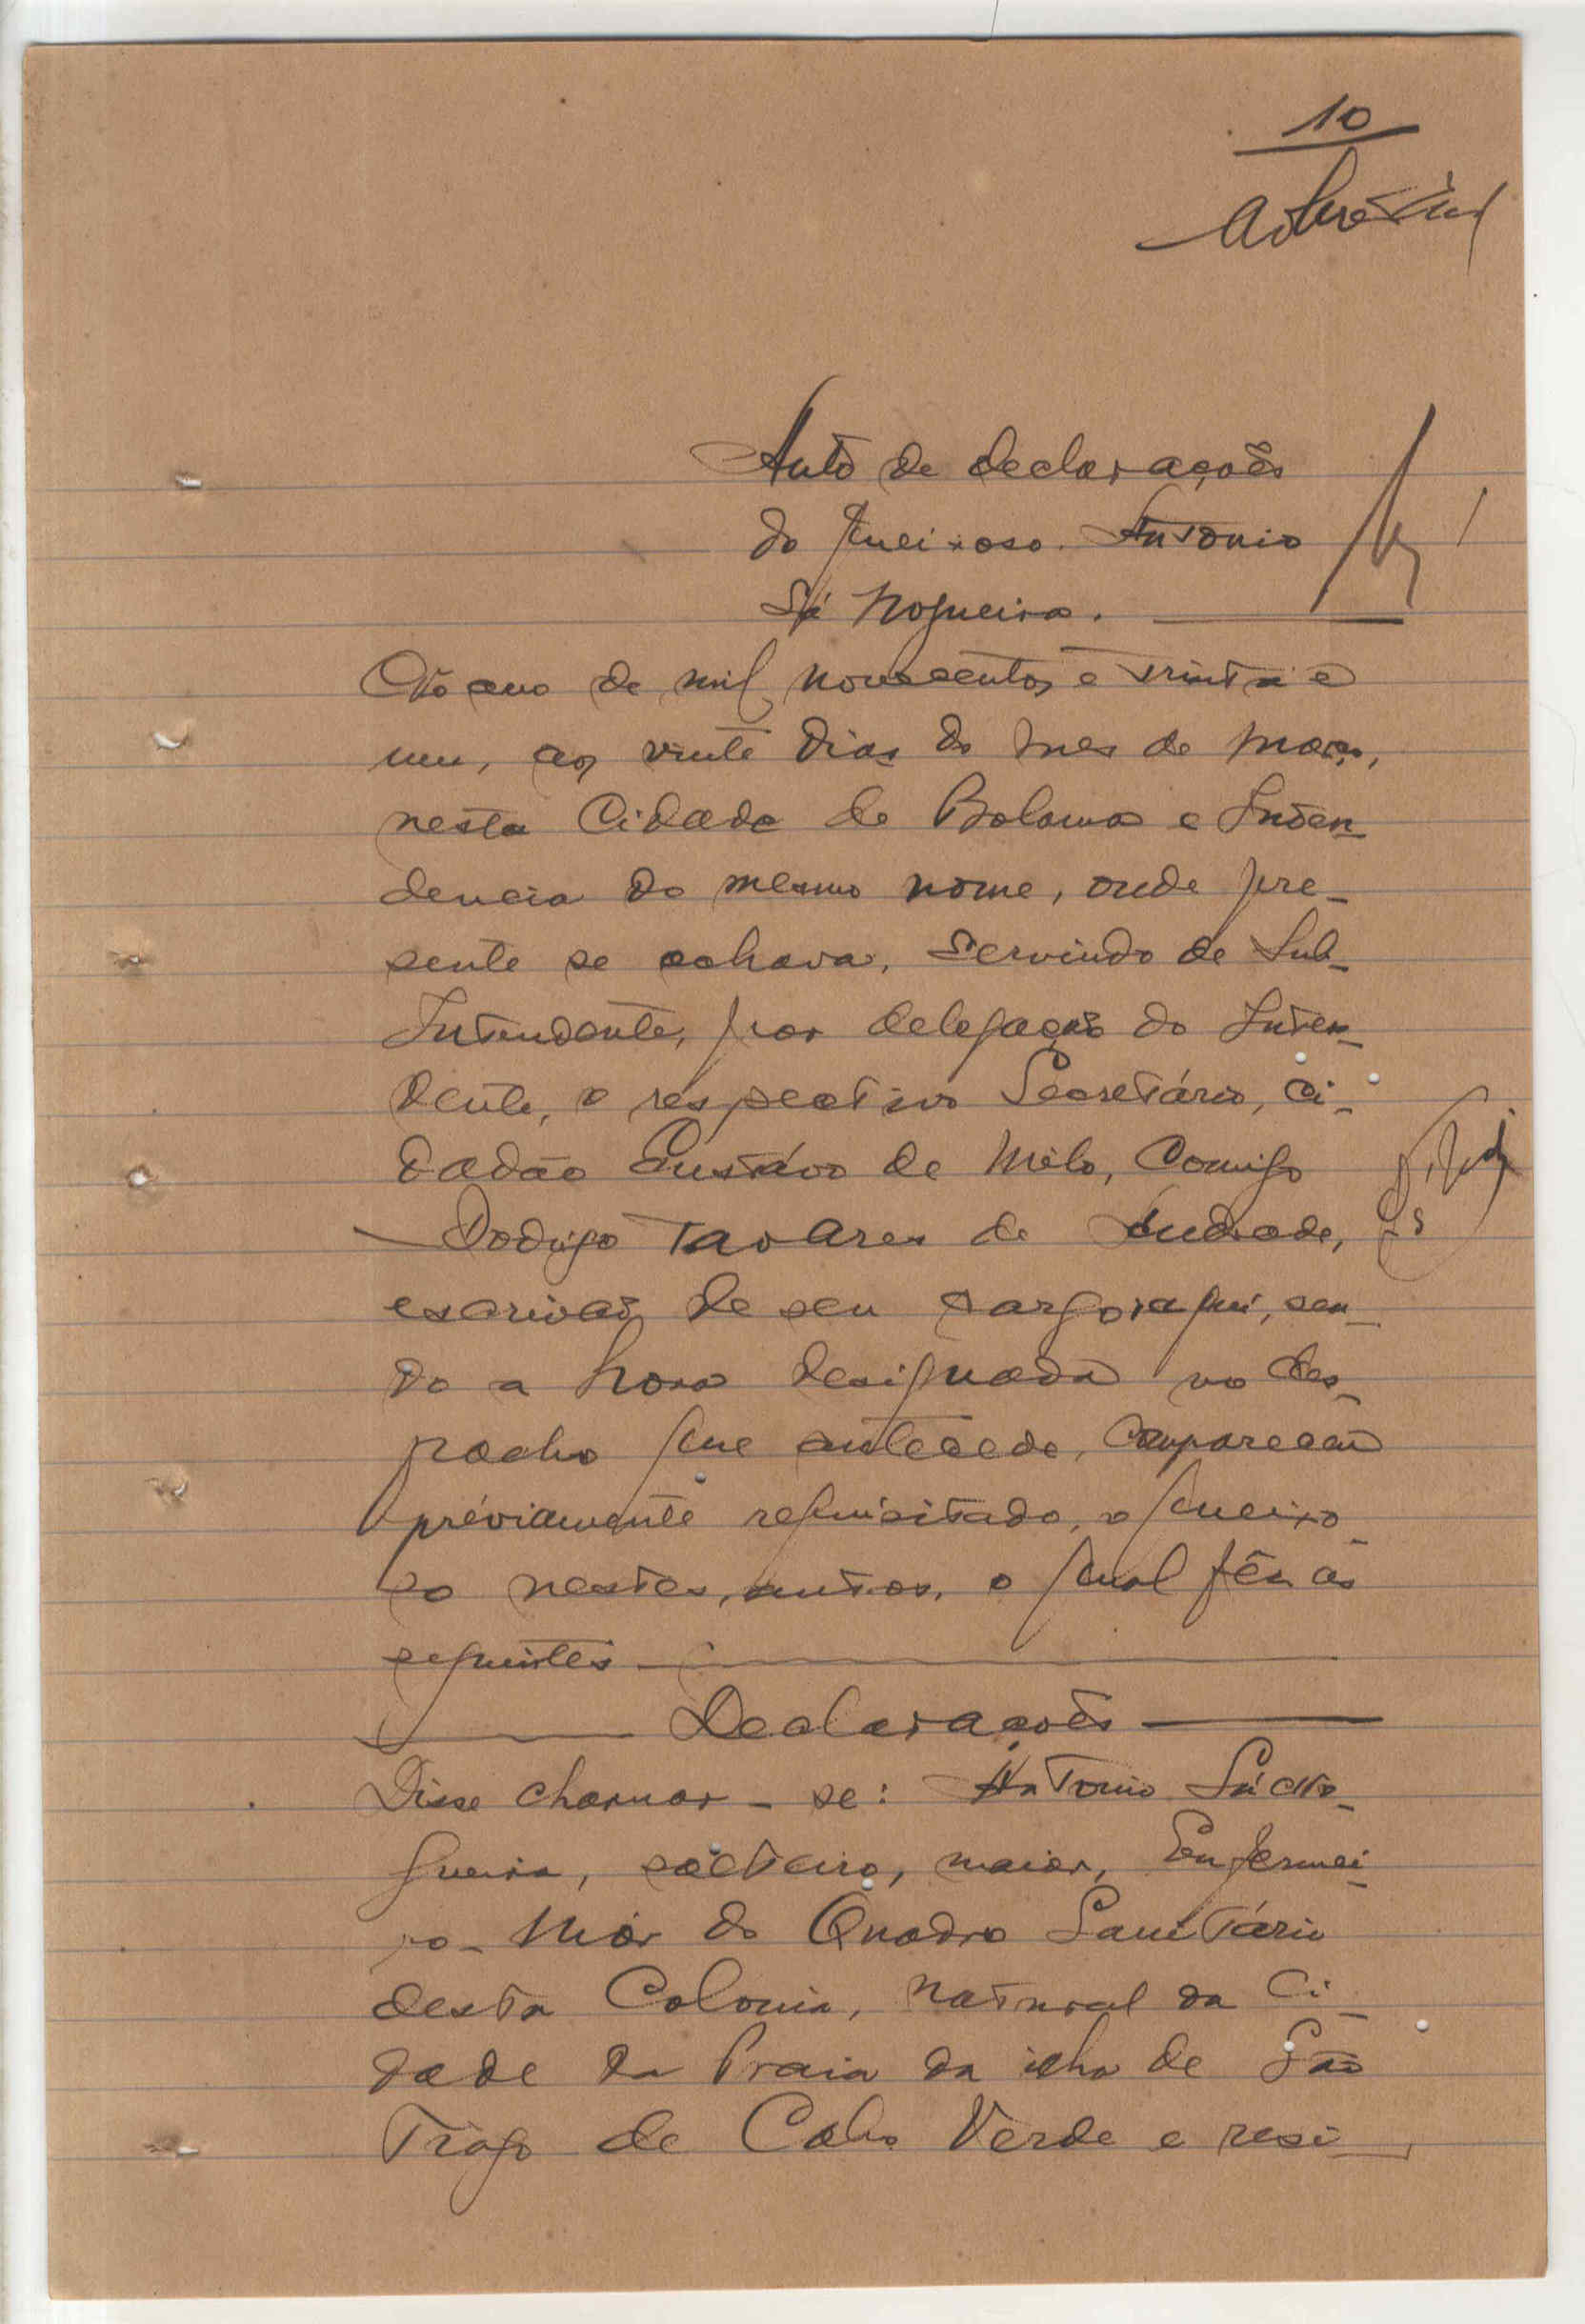 10
Auto de declarações
do queixoso. Antonio
Sá Nogueira.
No ano de mil novecentos e trinta e
um, aos vinte dias do mes de março,
nesta Cidade de Bolama e Inten-
dencia do mesmo nome, onde pre-
sente se achava, servindo de Sub-
Intendente, por delegação do Inten-
dente, o respectivo Secretário, ci-
dadão Gustávo de Mélo, comigo
Rodrigo Tavares de Andrade,
escrivão de seu cargo, aqui, sen-
do a hora designada no des-
pacho que antecede, compareceu
préviamente requisitado, o queixo-
so nestes, autos, o qual fêz as
seguintes
Declarações
Disse chamar-se: Antonio Sá No-
gueira, solteiro, maior, Enfermei-
ro-Mór do Quadro Sanitário
desta Colonia, natural da Ci-
dade da Praia da ilha de São
Tiago de Cabo Verde e resi-